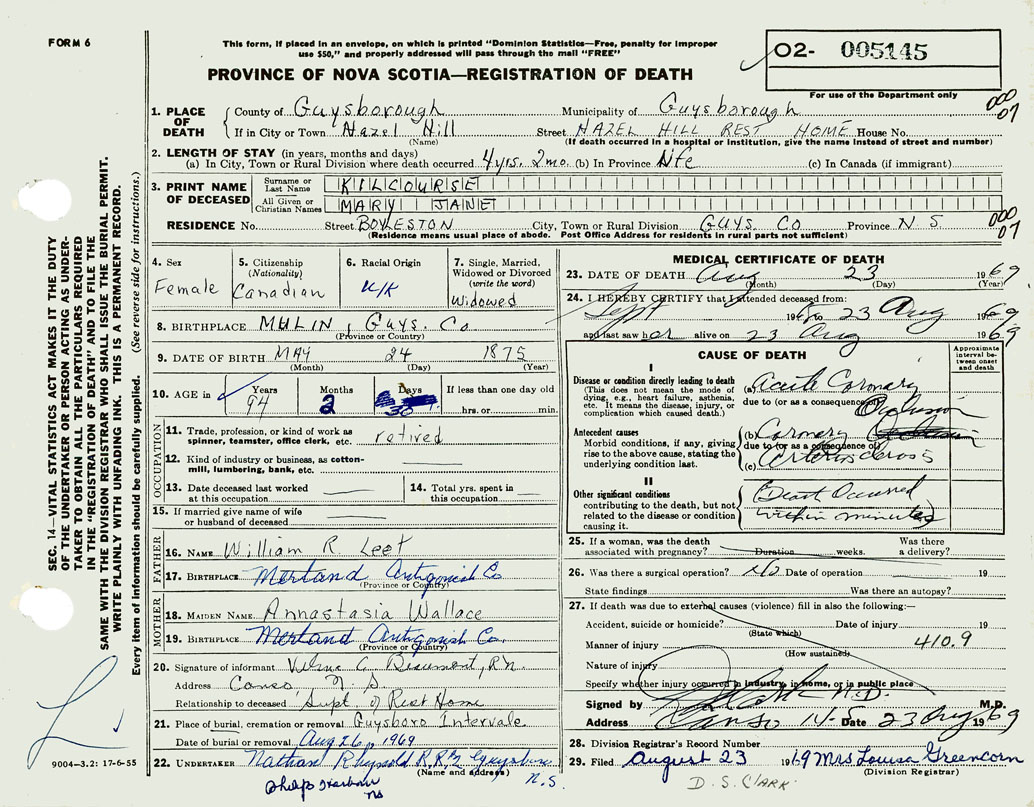 FORM 6
This form, if placed in an envelope, on which is printed "Dominion Statistics—Free, penalty for improper
use $50," and properly addressed will pass through the mail "FREE"
PROVINCE OF NOVA SCOTIA—REGISTRATION OF DEATH
02- 005145
For use of the Department only
1. PLACE OF DEATH
County of Guysborough Municipality of Guysborough
000 07
If in City or Town Hazel Hill Street HAZEL HILL REST HOME House No.
(Name) (If death occurred in a hospital or institution, give the name instead of street and number)
2. LENGTH OF STAY (in years, months and days)
(a) In City, Town or Rural Division where death occurred 4 yrs. 2 mo. (b) In Province Life (c) In Canada (if immigrant)
3. PRINT NAME OF DECEASED
Surname or Last Name KILCOURSE
All Given or Christian Names MARY JANE
RESIDENCE No. Street BOYLESTON City, Town or Rural Division GUYS. CO Province N S
000 07
(Residence means usual place of abode. Post Office Address for residents in rural parts not sufficient)
4. Sex
Female
5. Citizenship
(Nationality)
Canadian
6. Racial Origin
U/K
7. Single, Married,
Widowed or Divorced
(write the word)
Widowed
8. BIRTHPLACE MULIN, GUYS. Co
(Province or Country)
9. DATE OF BIRTH MAY 24 1875
(Month) (Day) (Year)
10. AGE in Years Months Days If less than one day old
94 2 30 hrs. or min.
OCCUPATION
11. Trade, profession, or kind of work as
spinner, teamster, office clerk, etc. retired
12. Kind of industry or business, as cotton-
mill, lumbering, bank, etc.
13. Date deceased last worked
at this occupation
14. Total yrs. spent in
this occupation
15. If married give name of wife
or husband of deceased
FATHER
16. NAME William R. Leet
17. BIRTHPLACE Merland Antigonish Co
(Province or Country)
MOTHER
18. MAIDEN NAME Annastasia Wallace
19. BIRTHPLACE Merland Antigonish Co.
(Province or Country)
20. Signature of informant Velma C Beaumont, RN.
Address Canso, N. S
Relationship to deceased Supt. of Rest Home
21. Place of burial, cremation or removal Guysboro Intervale
Date of burial or removal Aug 26, 1969
22. UNDERTAKER Nathan R.R.2 Guysboro
(Name and address) N.S.
NS
MEDICAL CERTIFICATE OF DEATH
23. DATE OF DEATH Aug 23 1969
(Month) (Day) (Year)
24. I HEREBY CERTIFY that I attended deceased from:
Sept 1968 to 23 Aug 1969
and last saw her alive on 23 Aug 1969
CAUSE OF DEATH
Approximate interval be-tween onset and death
I
Disease or condition directly leading to death
(This does not mean the mode of
dying, e.g., heart failure, asthenia,
etc. It means the disease, injury, or
complication which caused death.)
(a) Acute Coronary
due to (or as a consequence of) Occlusion
Antecedent causes
Morbid conditions, if any, giving
rise to the above cause, stating the
underlying condition last.
(b) Coronary
due to (or as a consequence of)
(c) Arteriosclerosis
II
Other significant conditions
contributing to the death, but not
related to the disease or condition
causing it.
Death Occurred
within minutes
25. If a woman, was the death
associated with pregnancy? Duration weeks. Was there
a delivery?
26. Was there a surgical operation? No Date of operation 19
State findings Was there an autopsy?
27. If death was due to external causes (violence) fill in also the following:—
Accident, suicide or homicide? Date of injury 19
(State which)
Manner of injury 410.9
(How sustained)
Nature of injury
Specify whether injury occurred in industry, in home, or in public place
Signed by M.D. M.D.
Address Canso N.S Date 23 Aug 1969
28. Division Registrar's Record Number
29. Filed August 23 1969 Mrs Louisa Greencorn
(Division Registrar)
D. S. CLARK
SEC. 14—VITAL STATISTICS ACT MAKES IT THE DUTY
OF THE UNDERTAKER OR PERSON ACTING AS UNDER-
TAKER TO OBTAIN ALL THE PARTICULARS REQUIRED
IN THE "REGISTRATION OF DEATH" AND TO FILE THE
SAME WITH THE DIVISION REGISTRAR WHO SHALL ISSUE THE BURIAL PERMIT.
WRITE PLAINLY WITH UNFADING INK. THIS IS A PERMANENT RECORD.
Every item of information should be carefully supplied. (See reverse side for instructions.)
9004—3.2: 17-6-55